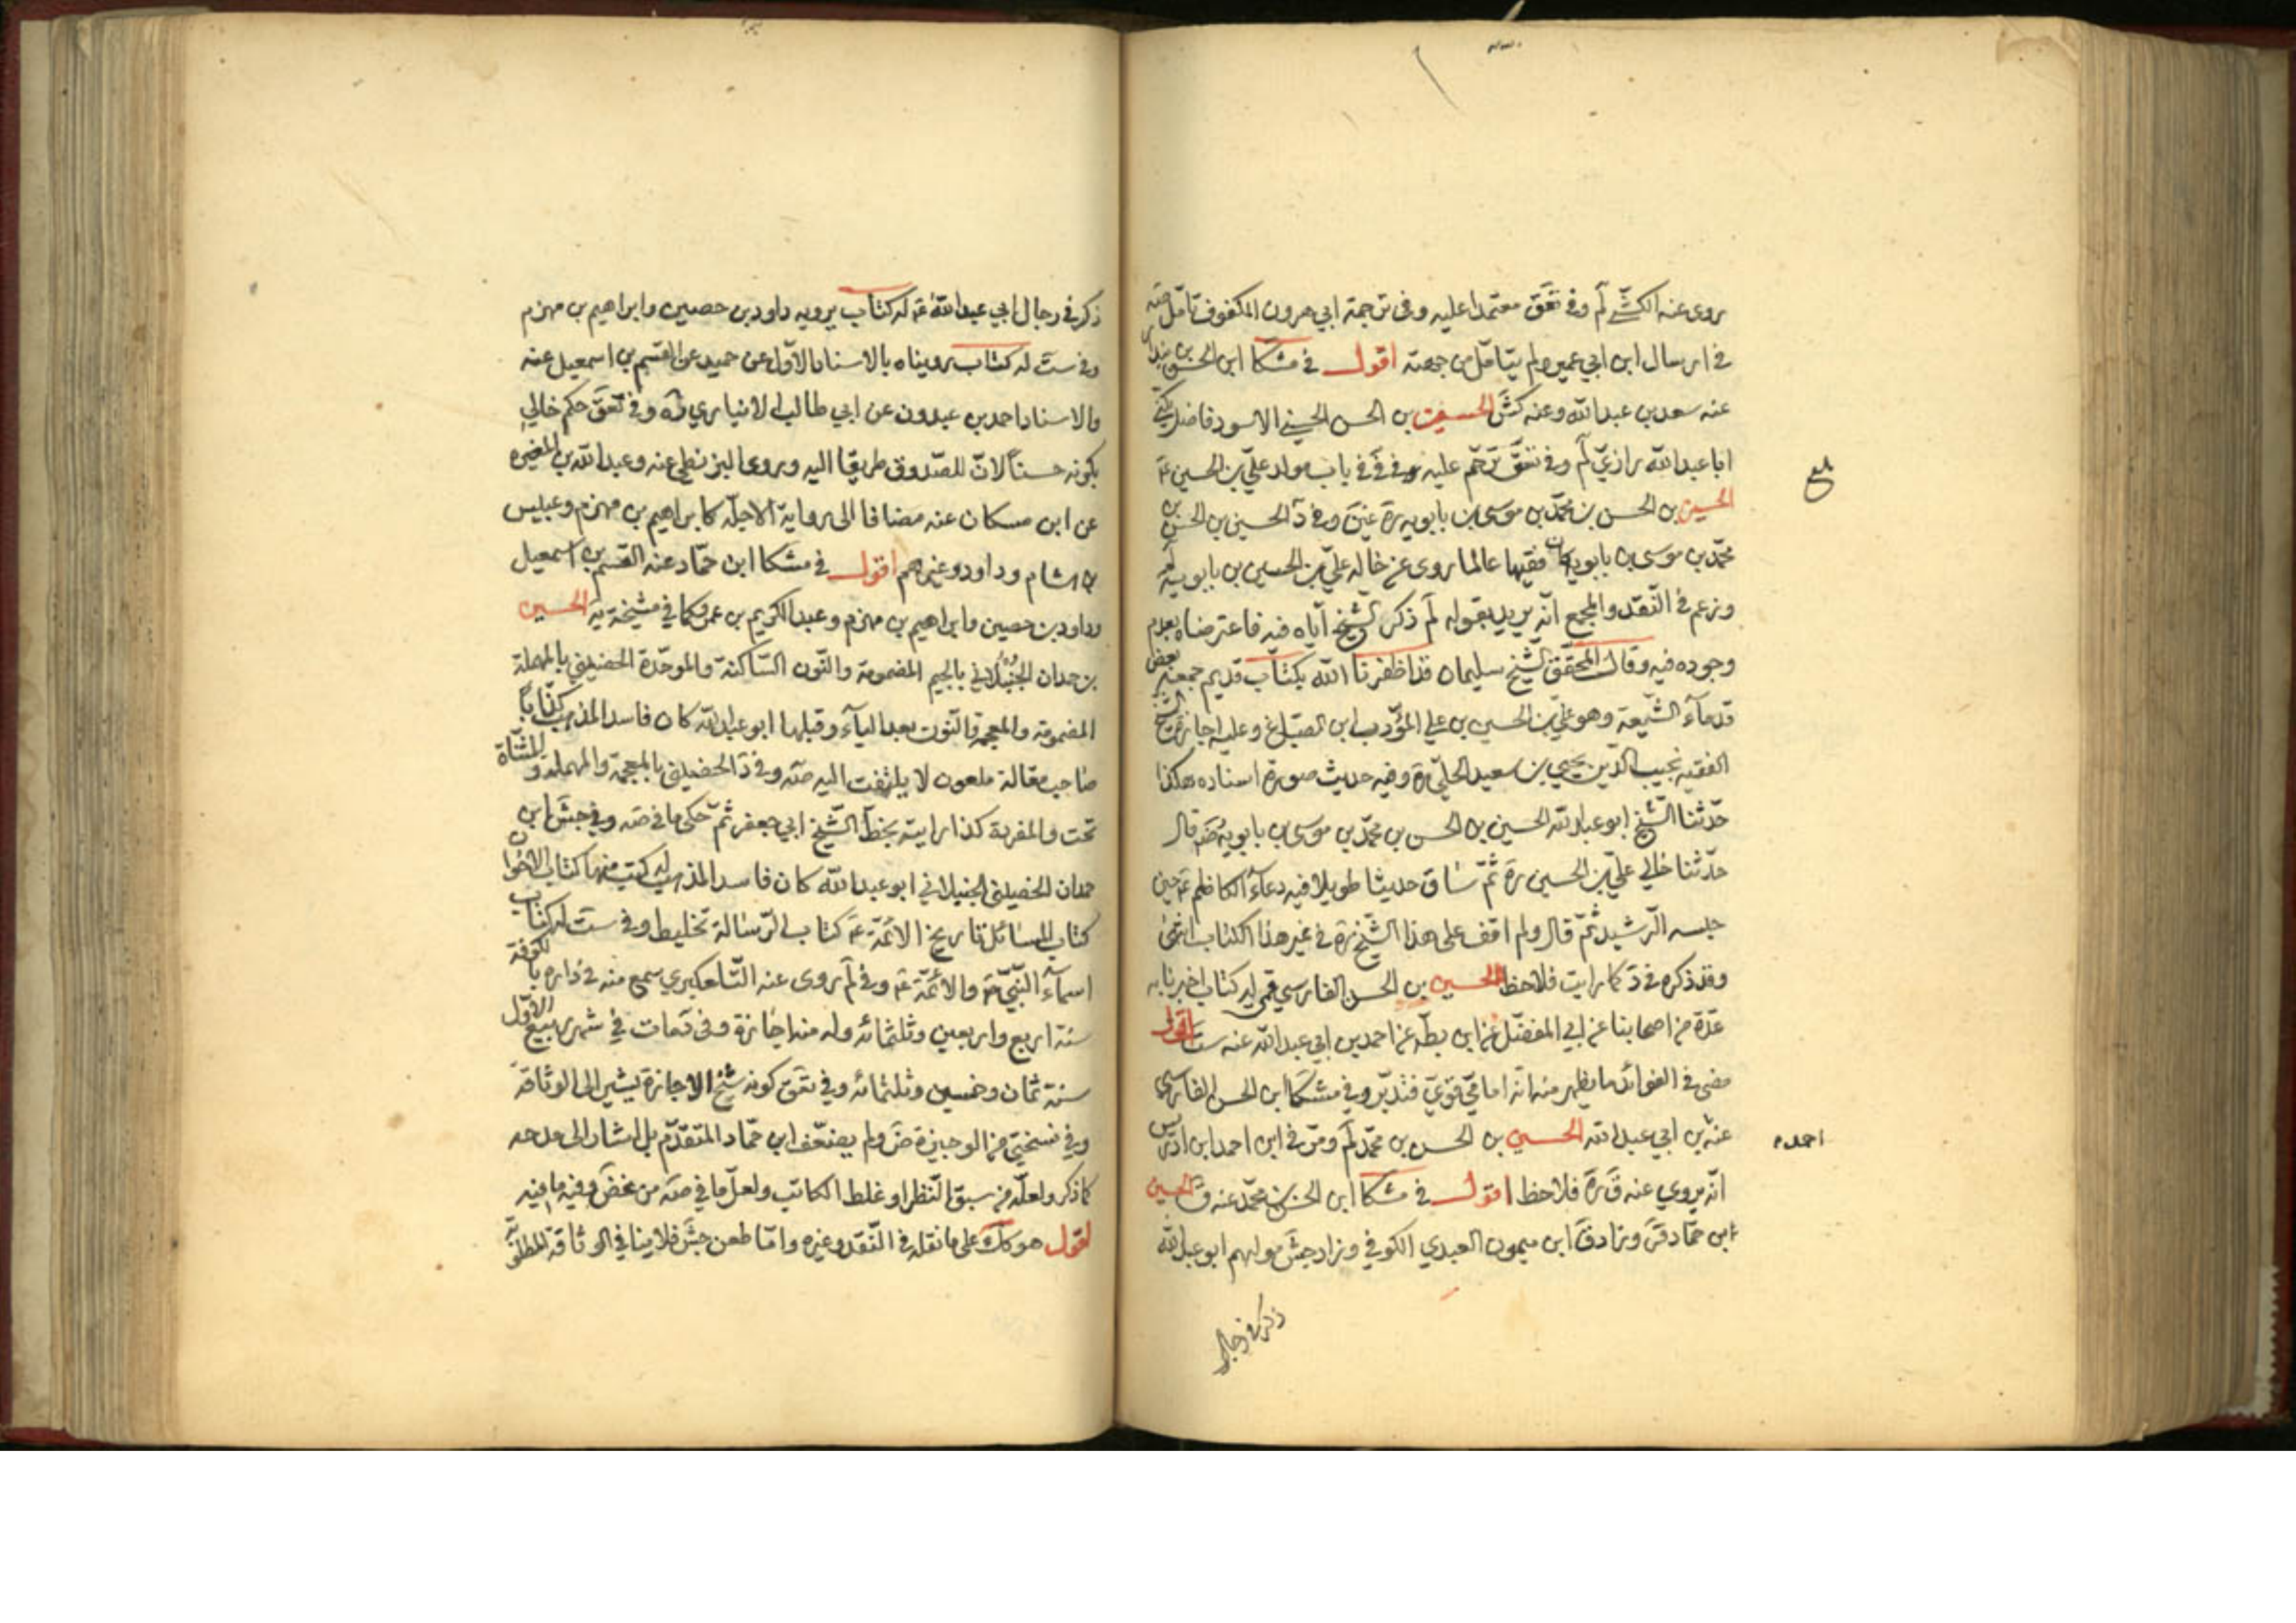 روى عنه الكشّي لم وفي تعق معتمدا عليه وفي ترجمة ابي هرون المكفوف تأمل صه
في ارسال ابن ابي عمير ولم يتأمل من جهته اقول في مشكا ابن الحسن بن بندار
عنه سعد بن عبدالله وعنه كش الحسين بن الحسن الحسيني الاسود فاضل يكنى
ابا عبدالله رازيّ لم وفي تعق ترحّم عليه في في باب مولد عليّ بن الحسين ع
الحسين بن الحسن بن محمّد بن موسى بن بابويه ره عين وفي د الحسين بن الحسن بن
محمّد بن موسى بن بابويه كان فقيها عالما روى عن خاله عليّ بن الحسين بن بابويه لم
وزعم في النّقد والمجمع انّه يريد بقوله لم ذكر الشّيخ ايّاه فيه فاعترضاه بعدم
وجوده فيه وقال المحقّق الشّيخ سليمان قد اظفرنا الله بكتاب قديم جمعه بعض
قدمآء الشّيعة وهو عليّ بن الحسين بن علي المؤدب ابن الصبّاغ وعليه اجازة الشيخ
الفقيه نجيب الدّين يحيى بن سعيد الحلّي ره وفيه حديث صورة اسناده هكذا
حدّثنا الشّيخ ابو عبدالله الحسين بن الحسن بن محمّد بن موسى بن بابويه رضه قال
حدّثنا خالي عليّ بن الحسين ره ثمّ ساق حديثا طويلا فيه دعآء الكاظم ع حين
حبسه الرّشيد ثمّ قال ولم اقف على هذا الشّيخ ره في غير هذا الكتاب انتهى
وقد ذكره في د كما رايت فلاحظ الحسين بن الحسن الفارسي قمي له كتاب اخبرنا به
عدّة من اصحابنا عن ابي المفضّل عن ابن بطّه عن احمد بن ابي عبدالله عنه ست اقول
مضى في الفوائد ما يظهر منه انّه اماميّ قويّ فتدبّر وفي مشكا ابن الحسن الفارسي
عنه بن ابي عبدالله الحسين بن الحسن بن محمّد لم ومرّ في ابن احمد ابن ادريس
احمد
انّه يروي عنه ق ره فلاحظ اقول في مشكا ابن الحسن بن محمّد عنه ق الحسين
ابن حمّاد قر وزاد ق ابن ميمون العبدي الكوفي وزاد جش مولاهم ابو عبدالله
ذكر في رجال
ذكر في رجال ابي عبدالله ع له كتاب يرويه داود بن حصين وابراهيم بن مهزم
وفي ست له كتاب رويناه بالاسناد الاوّل عن حميد عن القسم بن اسمعيل عنه
والاسناد احمد بن عبدون عن ابي طالب الانباري وفي تعق حكم خالي
بكونه حسنا لانّ للصّدوق طريقا اليه وروى البزنطي عنه وعبدالله بن المغيره
عن ابن مسكان عنه مضافا الى رواية الاجلّه كابراهيم بن مهزم وعبيس
بن هشام وداود وغيرهم اقول في مشكا ابن حمّاد عنه القسم بن اسمعيل
وداود بن حصين وابراهيم بن مهزم وعبدالكريم بن عمرو كما في مشيخة يه الحسين
بن حمدان الجنبلاني بالجيم المضمومة والنّون السّاكنة والموحّدة الحضيني بالمهملة
المضمومة والمعجمة والنّون بعد اليآء وقبلها ابو عبدالله كان فاسد المذهب كذّابا
صاحب مقالة ملعون لا يلتفت اليه صه وفي د الخصيبي بالمعجمة والمهملة والمثنّاة
تحت والمفردة كذا رايته بخطّ الشّيخ ابي جعفر ثمّ حكى ما في صه وفي جش ابن
حمدان الخصيبي الجنبلاني ابو عبدالله كان فاسد المذهب له كتب منها كتاب الاخوان
كتاب المسائل تاريخ الائمّة ع كتاب الرّسالة تخليط وفي ست له كتاب
اسمآء النّبيّ ص والائمّة ع وفي لم روى عنه التّلعكبري سمع منه في داره بالكوفة
سنة اربع واربعين وثلثمائه وله منه اجازة وفي د مات في شهر ربيع الاوّل
سنة ثمان وخمسين وثلثمائه وفي تعق كونه شيخ الاجازة يشير الى الوثاقة
وفي نسختي من الوجيزة ض ولم يضعّف ابن حمّاد المتقدّم بل اشار الى مدحه
كما ذكر ولعلّه من سبق النّظر او غلط الكاتب ولعلّ ما في صه من غض وفيه ما فيه
اقول هو كك على ما نقله في النّقد وغيره وامّا طعن جش فلا ينافي الوثاقة المطلقة